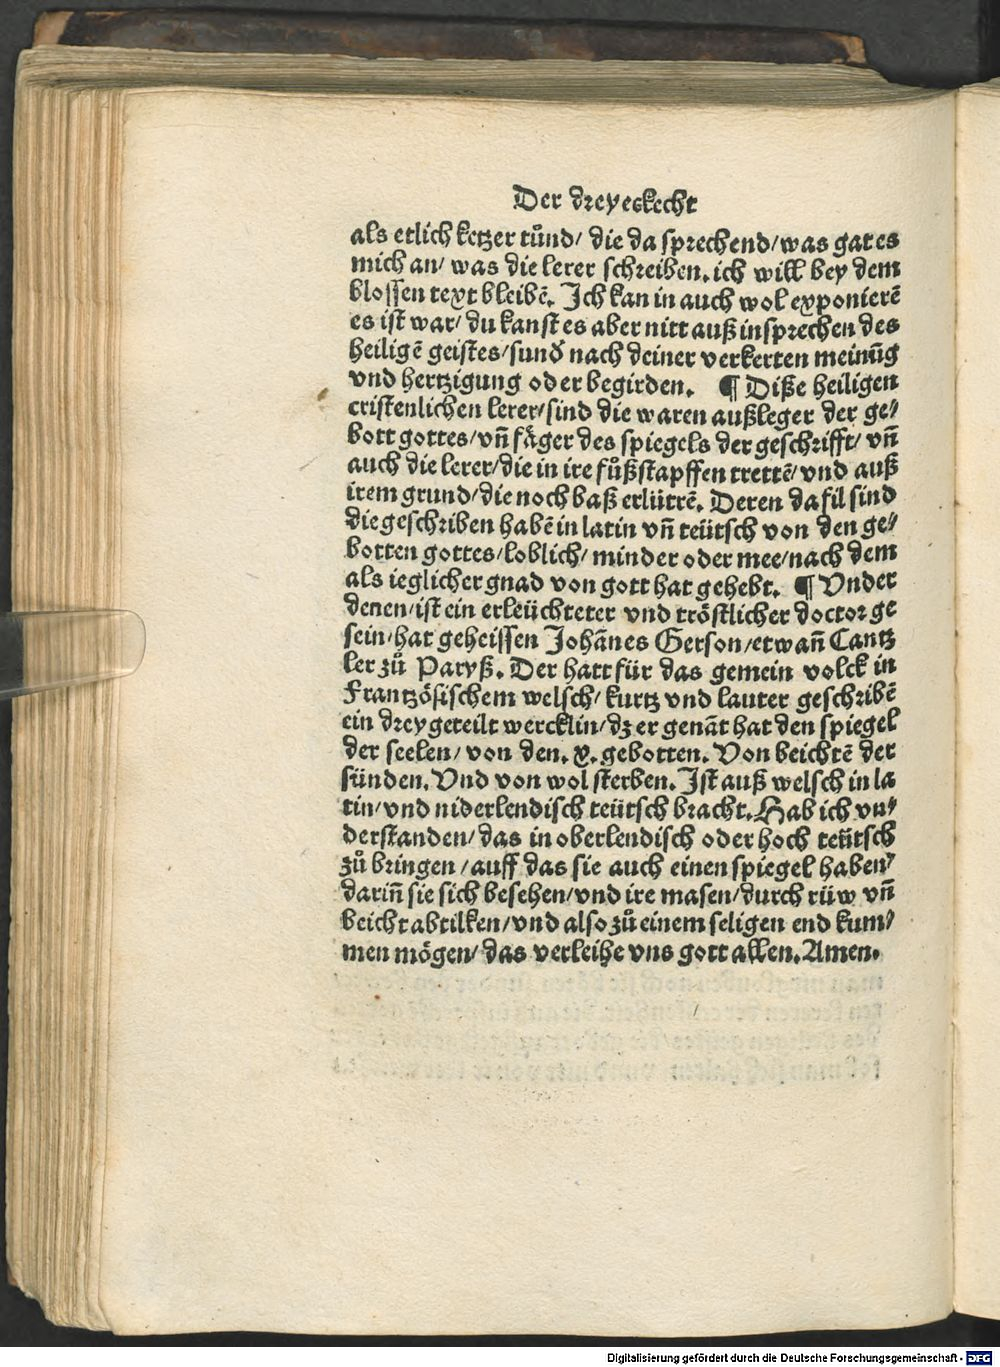 Der dreyeckecht
als etlich ketzer tůnd/ die da sprechend/was gat es
mich an/ was die lerer schreiben. ich will bey dem
blossen text bleibē. Ich kan in auch wol exponierē
es ist war/ du kanst es aber nitt auß insprechen des
heiligē geistes/sunď nach deiner verkerten meinūg
vnd hertzigung oder begirden. ¶ Diße heiligen
cristenlichen lerer/sind die waren außleger der ge/
bott gottes/vn̄ fäger des spiegels der geschrifft/ vn̄
auch die lerer/die in ire fůßstapffen trettē/vnd auß
irem grund/die noch baß erlütrē. Deren da fil sind
die geschriben habē in latin vn̄ teütsch von den ge/
botten gottes/loblich/ minder oder mee/nach dem
als ieglicher gnad von gott hat gehebt. ¶ Vnder
denen/ist ein erleüchteter vnd tröstlicher doctor ge
sein/hat geheissen Johānes Gerson/etwan̄ Cantz
ler zů Paryß. Der hatt für das gemein volck in
Frantzösischem welsch/ kurtz vnd lauter geschribē
ein drey geteilt wercklin/dz er genāt hat den spiegel
der seelen/ von den. x. gebotten. Von beichtē der
sünden. Vnd von wol sterben. Ist auß welsch in la
tin/ vnd niderlendisch teütsch bracht. Hab ich vn/
derstanden/ das in oberlendisch oder hoch teütsch
zů bringen /auff das sie auch einen spiegel haben/
darin̄ sie sich besehen/vnd ire masen/durch rüw vn̄
beicht abtilken/vnd also zů einem seligen end kum/
men mögen/ das verleihe vns gott allen. Amen.
Digitalisierung gefördert durch die Deutsche Forschungsgemeinschaft - DFG